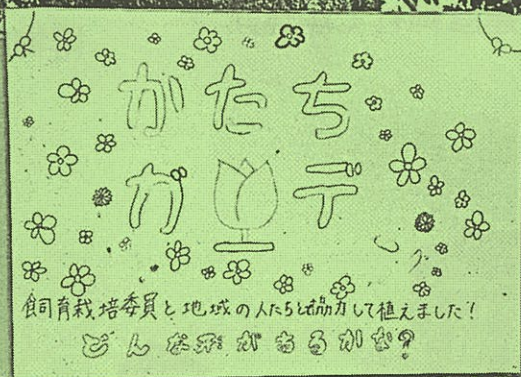 かたち
ガーデ
飼育栽培委員と地域の人たちと協力して植えました！
どんな形があるかな？